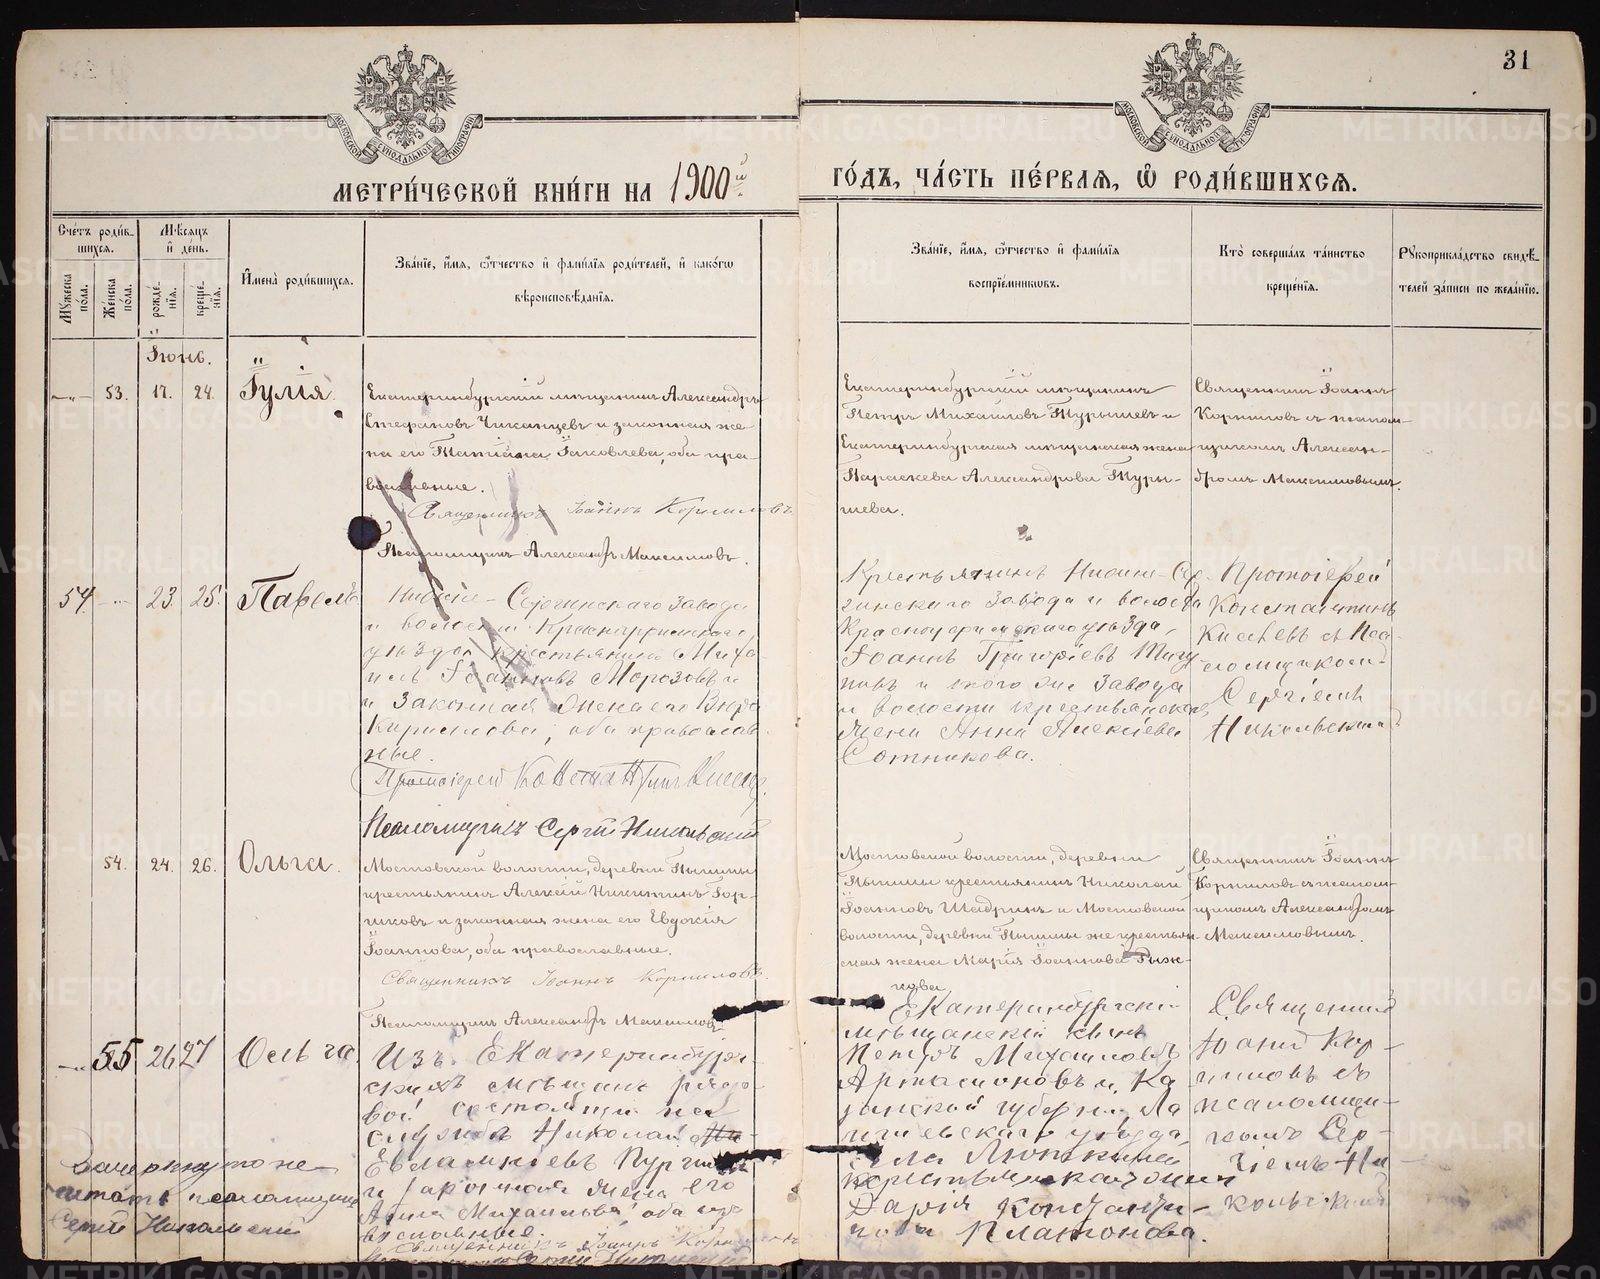 31
МЕТРИ́ЧЕСКОЙ КНИ́ГИ НА 1900й ГО́ДЪ, ЧА́СТЬ ПЕ́РВАѦ, Ѡ РОДИ́ВШИХСѦ.
Сче́тъ роди́в-
шихся.
Мꙋжеска
по́ла.
Же́нска
по́ла.
Мѣ́сяцъ
и҆ де́нь.
рожде́-
нїѧ.
креще́-
нїѧ.
И҆мена̀ роди́вшихся.
Зва́нїе, и҆́мѧ, ѻ҆́тчество и҆ фами́лїѧ роди́телей, и҆ како́гѡ
вѣроисповѣ́данїѧ.
Зва́нїе, и҆́мѧ, ѻ҆́тчество и҆ фами́лїѧ
воспрїе́мниковъ.
Кто̀ соверша́лъ та́инство
креще́нїѧ.
Рꙋкоприкла́дство свидѣ́-
телей за́писи по жела́нїю.
Іюнь.
53. 17. 24. Іулія.
Екатеринбургскій мѣщанинъ Александръ
Стефановъ Чиканцевъ и законная же-
на его Татіана Іаковлева, оба пра-
вославные.
Священникъ Іоаннъ Корниловъ
Псаломщикъ Александръ Максимовъ.
Екатеринбургскій мѣщанинъ
Петръ Михайловъ Турышевъ и
Екатеринбургская мѣщанская жена
Параскева Александрова Туры-
шева.
Священникъ Іоаннъ
Корниловъ съ псалом-
щикомъ Алексан-
дромъ Максимовымъ.
54. 23. 25. Павелъ
Нижне-Сергинскаго завода
и волости Красноуфимскаго
уѣзда крестьянинъ Миха
илъ Іоанновъ Морозовъ и
и законная жена его Вѣра
Кириллова, оба православ
ные.
Протоіерей Константинъ
Псаломщикъ Сергій Никольскій
Крестьянинъ Нижне-Сер-
гинскаго завода и волости
Красноуфимскаго уѣзда,
Іоаннъ Григорьевъ
и того же завода
и волости крестьянская
жена Анна Алексіева
Сотникова.
Протоіерей
Константинъ
съ Пса-
ломщикомъ
Сергіемъ
Никольскимъ
54. 24. 26. Ольга.
Мостовской волости, деревни Пышмы
крестьянинъ Алексій Никитинъ Гор-
шковъ и законная жена его Евдокія
Іоаннова, оба православные.
Священникъ Іоаннъ Корниловъ.
Псаломщикъ Александръ Максимовъ
Мостовской волости, деревни
Пышмы крестьянинъ Николай
Іоанновъ Шадринъ и Мостовской
волости, деревни Пышмы же крестьян-
ская жена Марія Іоаннова Рыж-
кова
Священникъ Іоаннъ
Корниловъ съ псалом-
щикомъ Александромъ
Максимовымъ.
55 26 27 Ольга.
Изъ Екатеринбург-
скихъ мѣщанъ рядо-
вой состоящій на
службѣ Николай
Евлампіевъ
и законная жена его
Анна Михайлова, оба пра
вославные.
Священникъ Іоаннъ Корниловъ
Екатеринбургскій
мѣщанскій сынъ
Петръ Михаиловъ
Артамоновъ и Ка
занской губерніи Ла
ишевскаго уѣзда,
села
крестьянская
Дарія Константи-
нова Платонова.
Священникъ
Іоаннъ Кор-
ниловъ съ
псаломщи-
комъ Сер-
гіемъ Ни-
кольскимъ
Зачеркнутое не
читать псаломщикъ
Сергій Никольскій